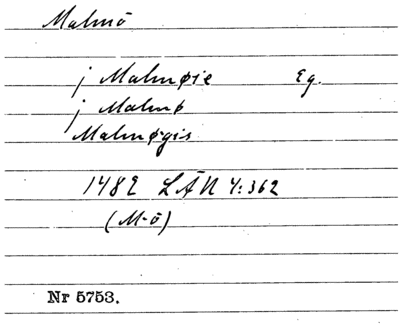 Malmö
j Malmøie Eg.
j Malmø
Malmøgis
1482 LÄN 4:362
(M-ö)
Nr 5753.